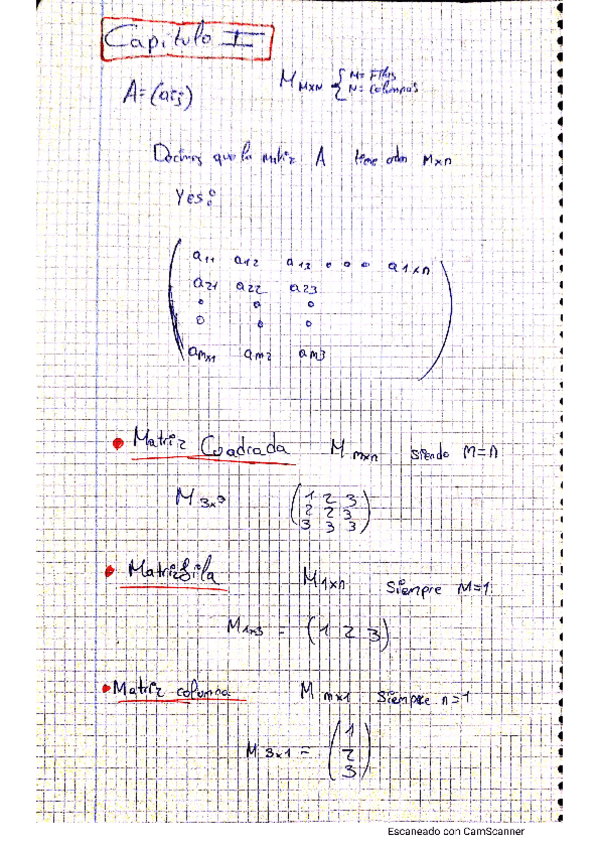 Capitulo I
A=(aij)
M MXN { M= Filas
N= Columnas
Decimos que la matriz A tiene odn mxn
Yes:
a11 a12 a13 ∘ ∘ ∘ a1xn
a21 a22 a23
∘ ∘ ∘
∘ ∘ ∘
am1 am2 am3
• Matriz Cuadrada M mxn siendo M=n
M 3x3 ( 1 2 3
2 2 3
3 3 3 )
• Matriz fila M1xn Siempre M=1
M1x3 = (1 2 3)
• Matriz columna M mx1 Siempre n=1
M 3x1 = ( 1
2
3 )
Escaneado con CamScanner